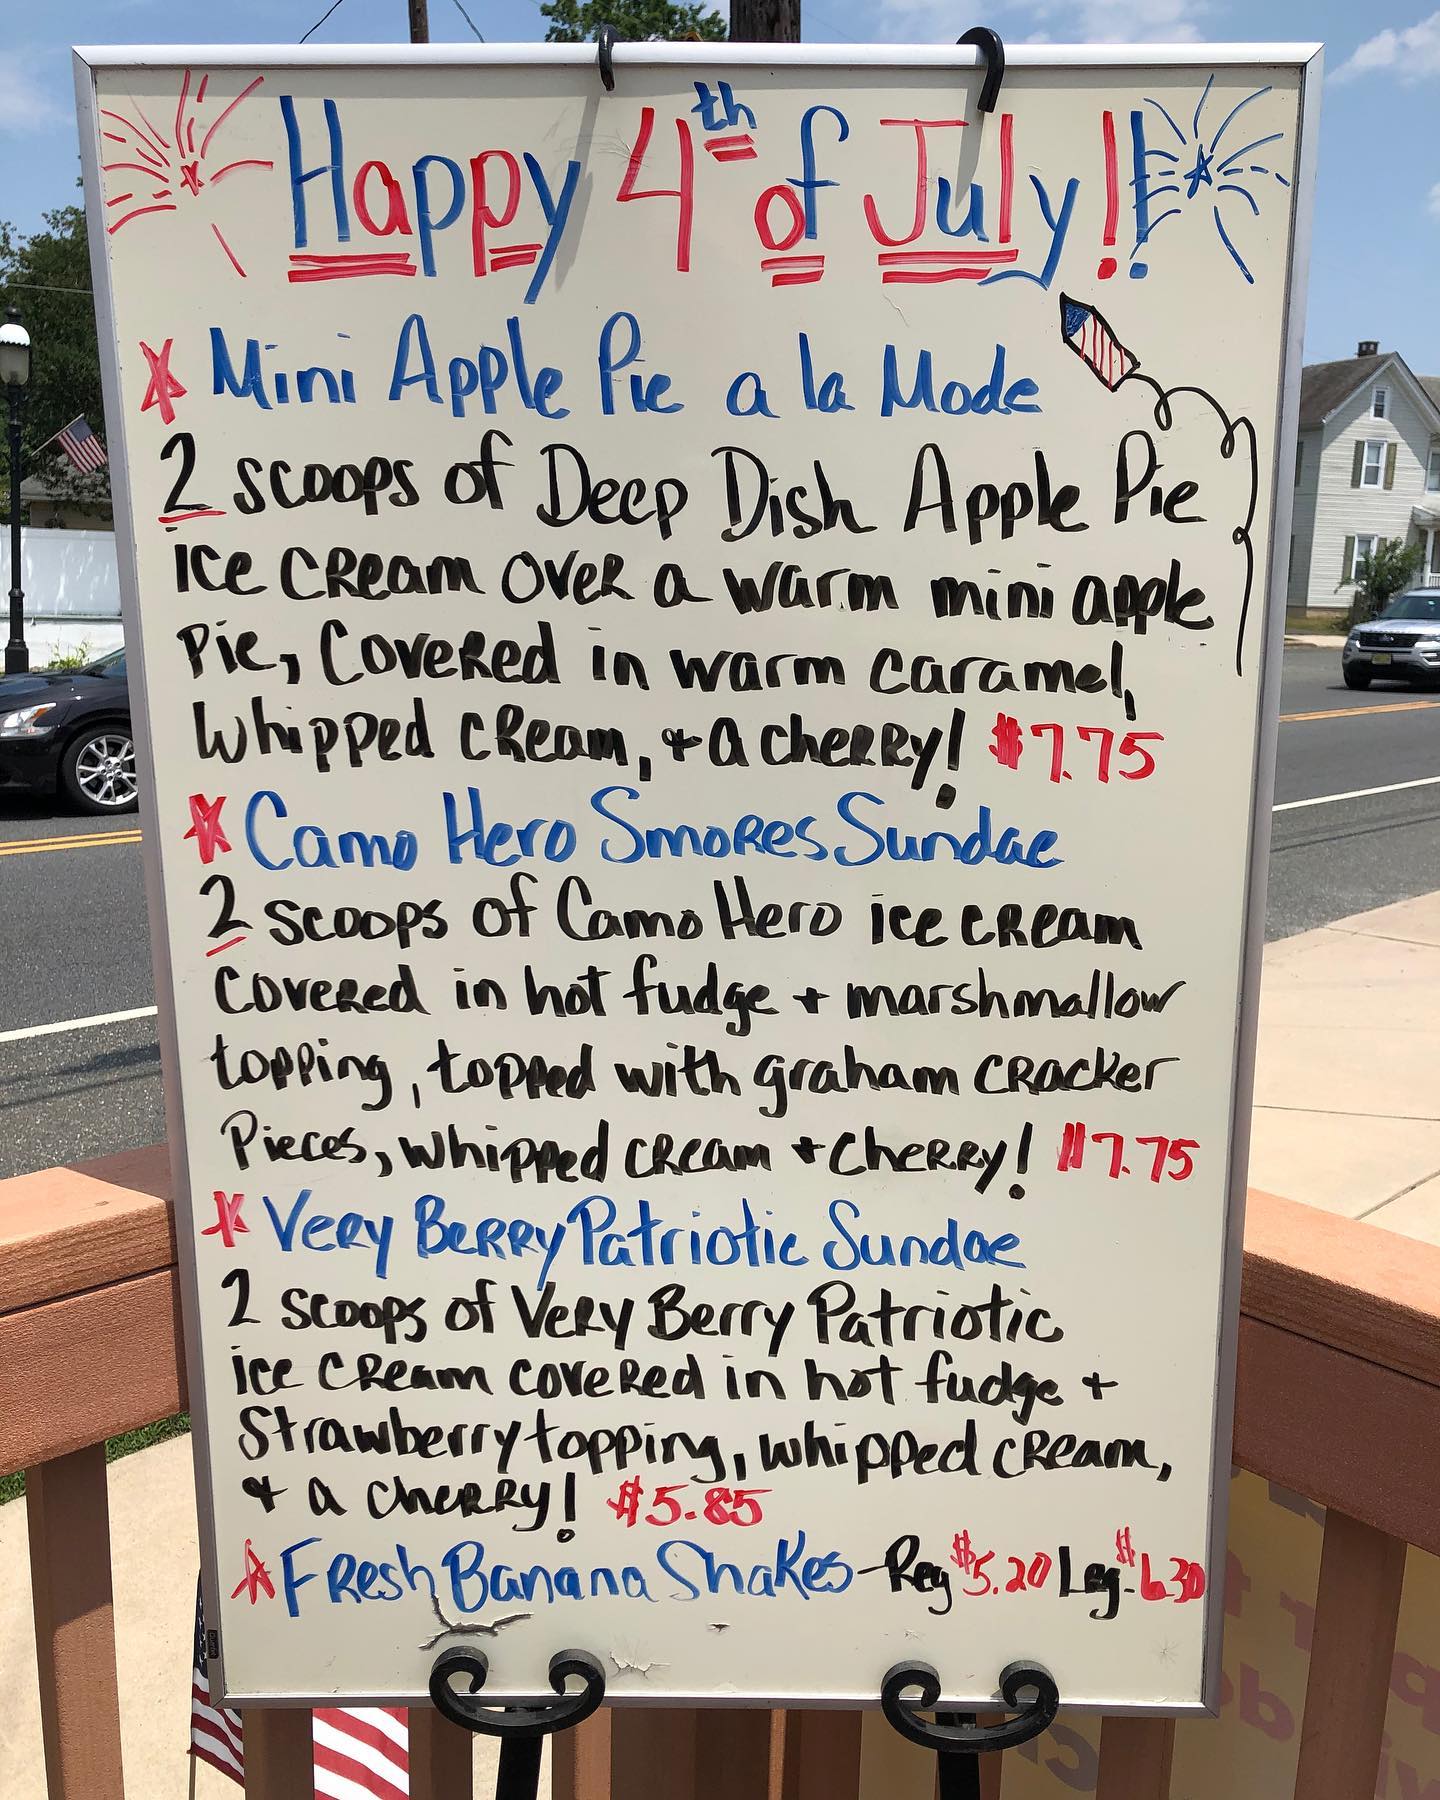 Happy 4th of July!!
Mini Apple Pie a la Mode
2 scoops of Deep Dish Apple Pie
ice cream over a warm mini apple
pie, covered in warm caramel,
whipped cream, + a cherry! $7.75
Camo Hero Smores Sundae
2 scoops of Camo Hero ice cream
covered in hot fudge + marshmallow
topping, topped with graham cracker
pieces, whipped cream + cherry! $7.75
Very Berry Patriotic Sundae
2 scoops of Very Berry Patriotic
ice cream covered in hot fudge +
strawberry topping, whipped cream,
+ a cherry! $5.85
Fresh Banana Shakes - Reg $5.20 Lrg. $6.30